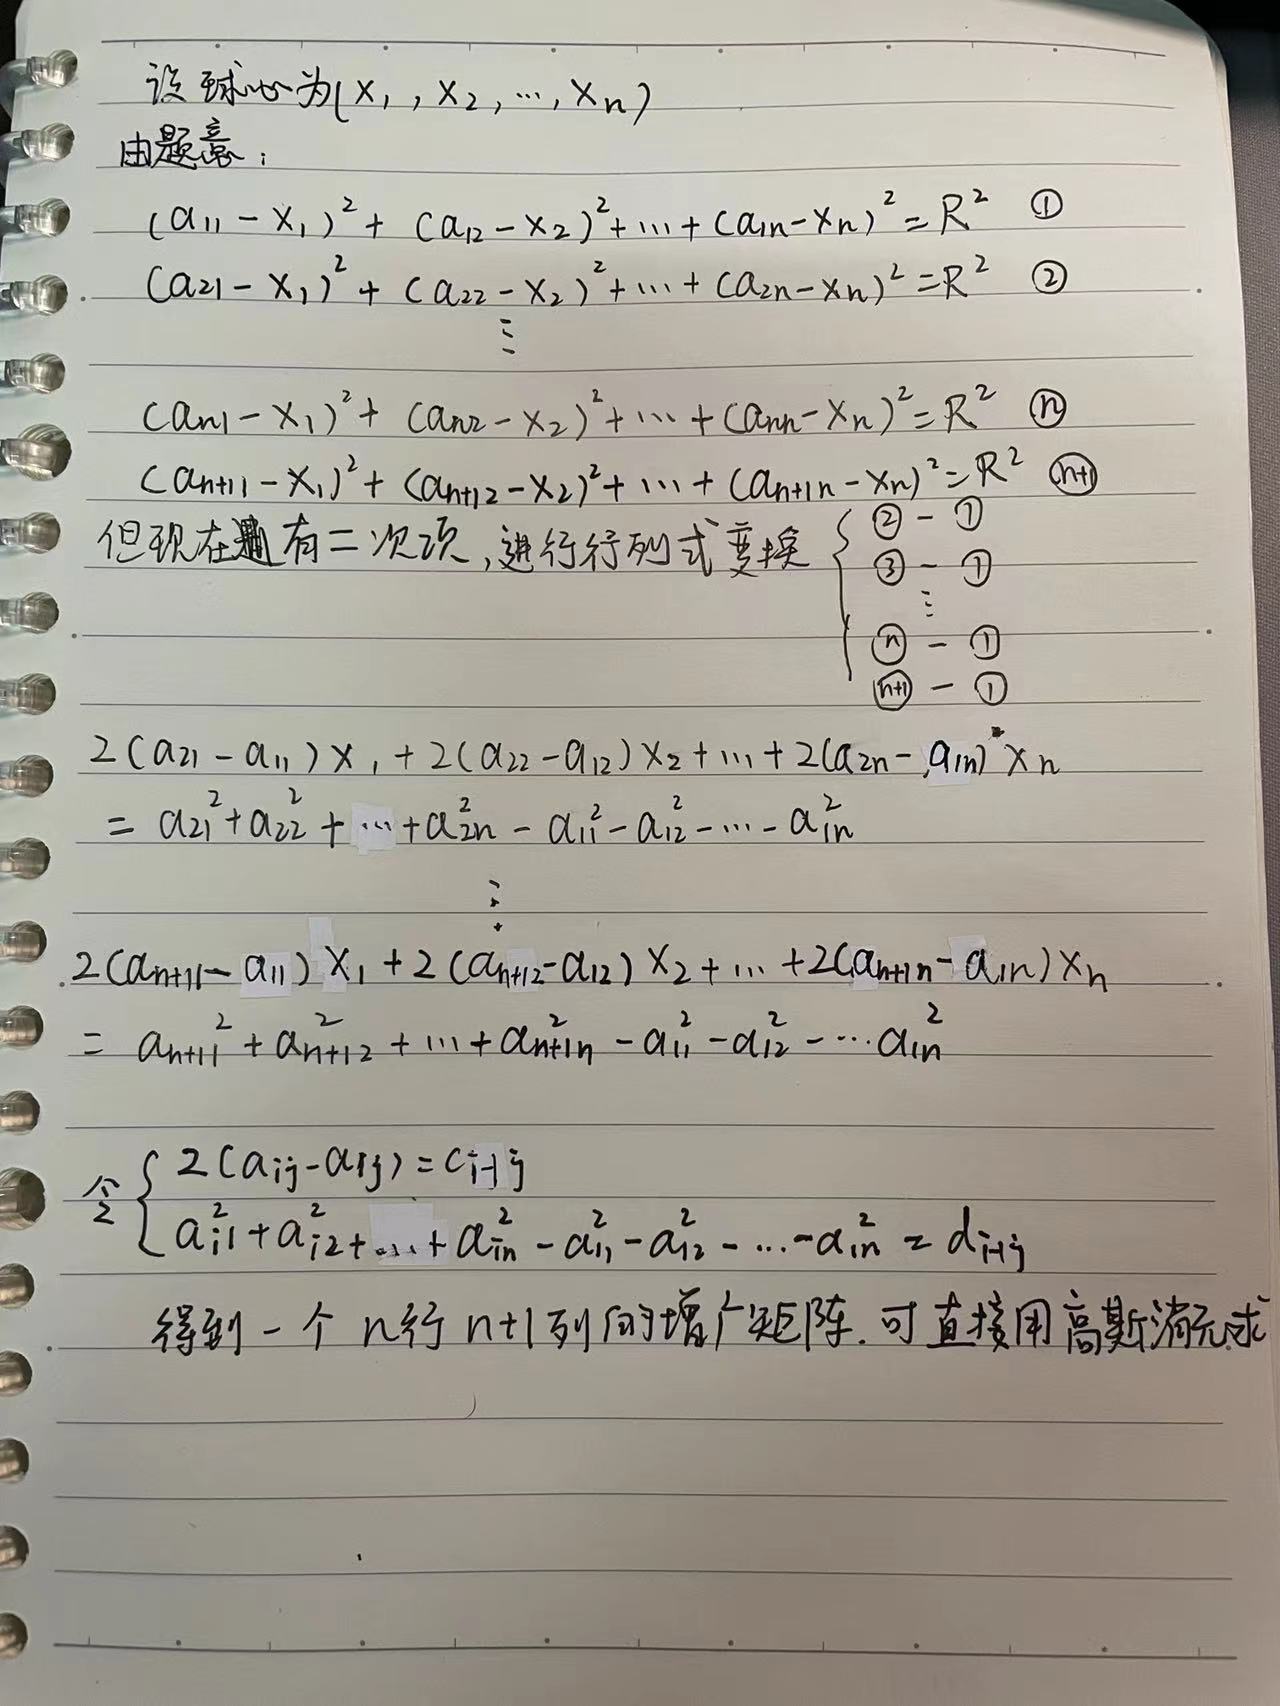 设球心为(x₁, x₂, ..., xₙ)
由题意:
(a₁₁ - x₁)² + (a₁₂ - x₂)² + ... + (a₁ₙ - xₙ)² = R² ①
(a₂₁ - x₁)² + (a₂₂ - x₂)² + ... + (a₂ₙ - xₙ)² = R² ②
⋮
(aₙ₁ - x₁)² + (aₙ₂ - x₂)² + ... + (aₙₙ - xₙ)² = R² ⓝ
(aₙ₊₁₁ - x₁)² + (aₙ₊₁₂ - x₂)² + ... + (aₙ₊₁ₙ - xₙ)² = R² (n+1)
但现在有二次项,进行行列式变换
② - ①
③ - ①
⋮
ⓝ - ①
(n+1) - ①
2(a₂₁ - a₁₁)x₁ + 2(a₂₂ - a₁₂)x₂ + ... + 2(a₂ₙ - a₁ₙ)xₙ
= a₂₁² + a₂₂² + ... + a₂ₙ² - a₁₁² - a₁₂² - ... - a₁ₙ²
⋮
2(aₙ₊₁₁ - a₁₁)x₁ + 2(aₙ₊₁₂ - a₁₂)x₂ + ... + 2(aₙ₊₁ₙ - a₁ₙ)xₙ
= aₙ₊₁₁² + aₙ₊₁₂² + ... + aₙ₊₁ₙ² - a₁₁² - a₁₂² - ... a₁ₙ²
令 { 2(aᵢⱼ - a₁ⱼ) = cᵢ₋₁ⱼ
aᵢ₁² + aᵢ₂² + ... + aᵢₙ² - a₁₁² - a₁₂² - ... - a₁ₙ² = dᵢ₋₁ⱼ
得到一个n行n+1列的增广矩阵.可直接用高斯消元求